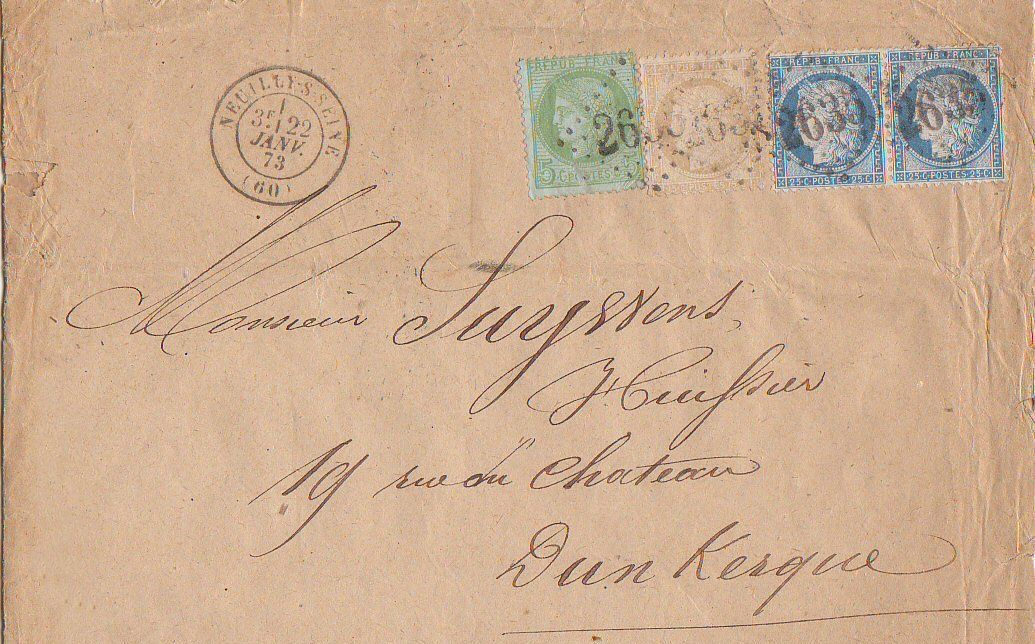 NEUILLY-S-SEINE
3E
22
JANV.
73
(60)
REPUB FRANC
5 C POSTES 5 C
2635
REPUB FRANC
25 C POSTES 25 C
2635
REPUB FRANC
25 C POSTES 25 C
2635
Monsieur
Huissier
19 rue du chateau
Dun Kerque